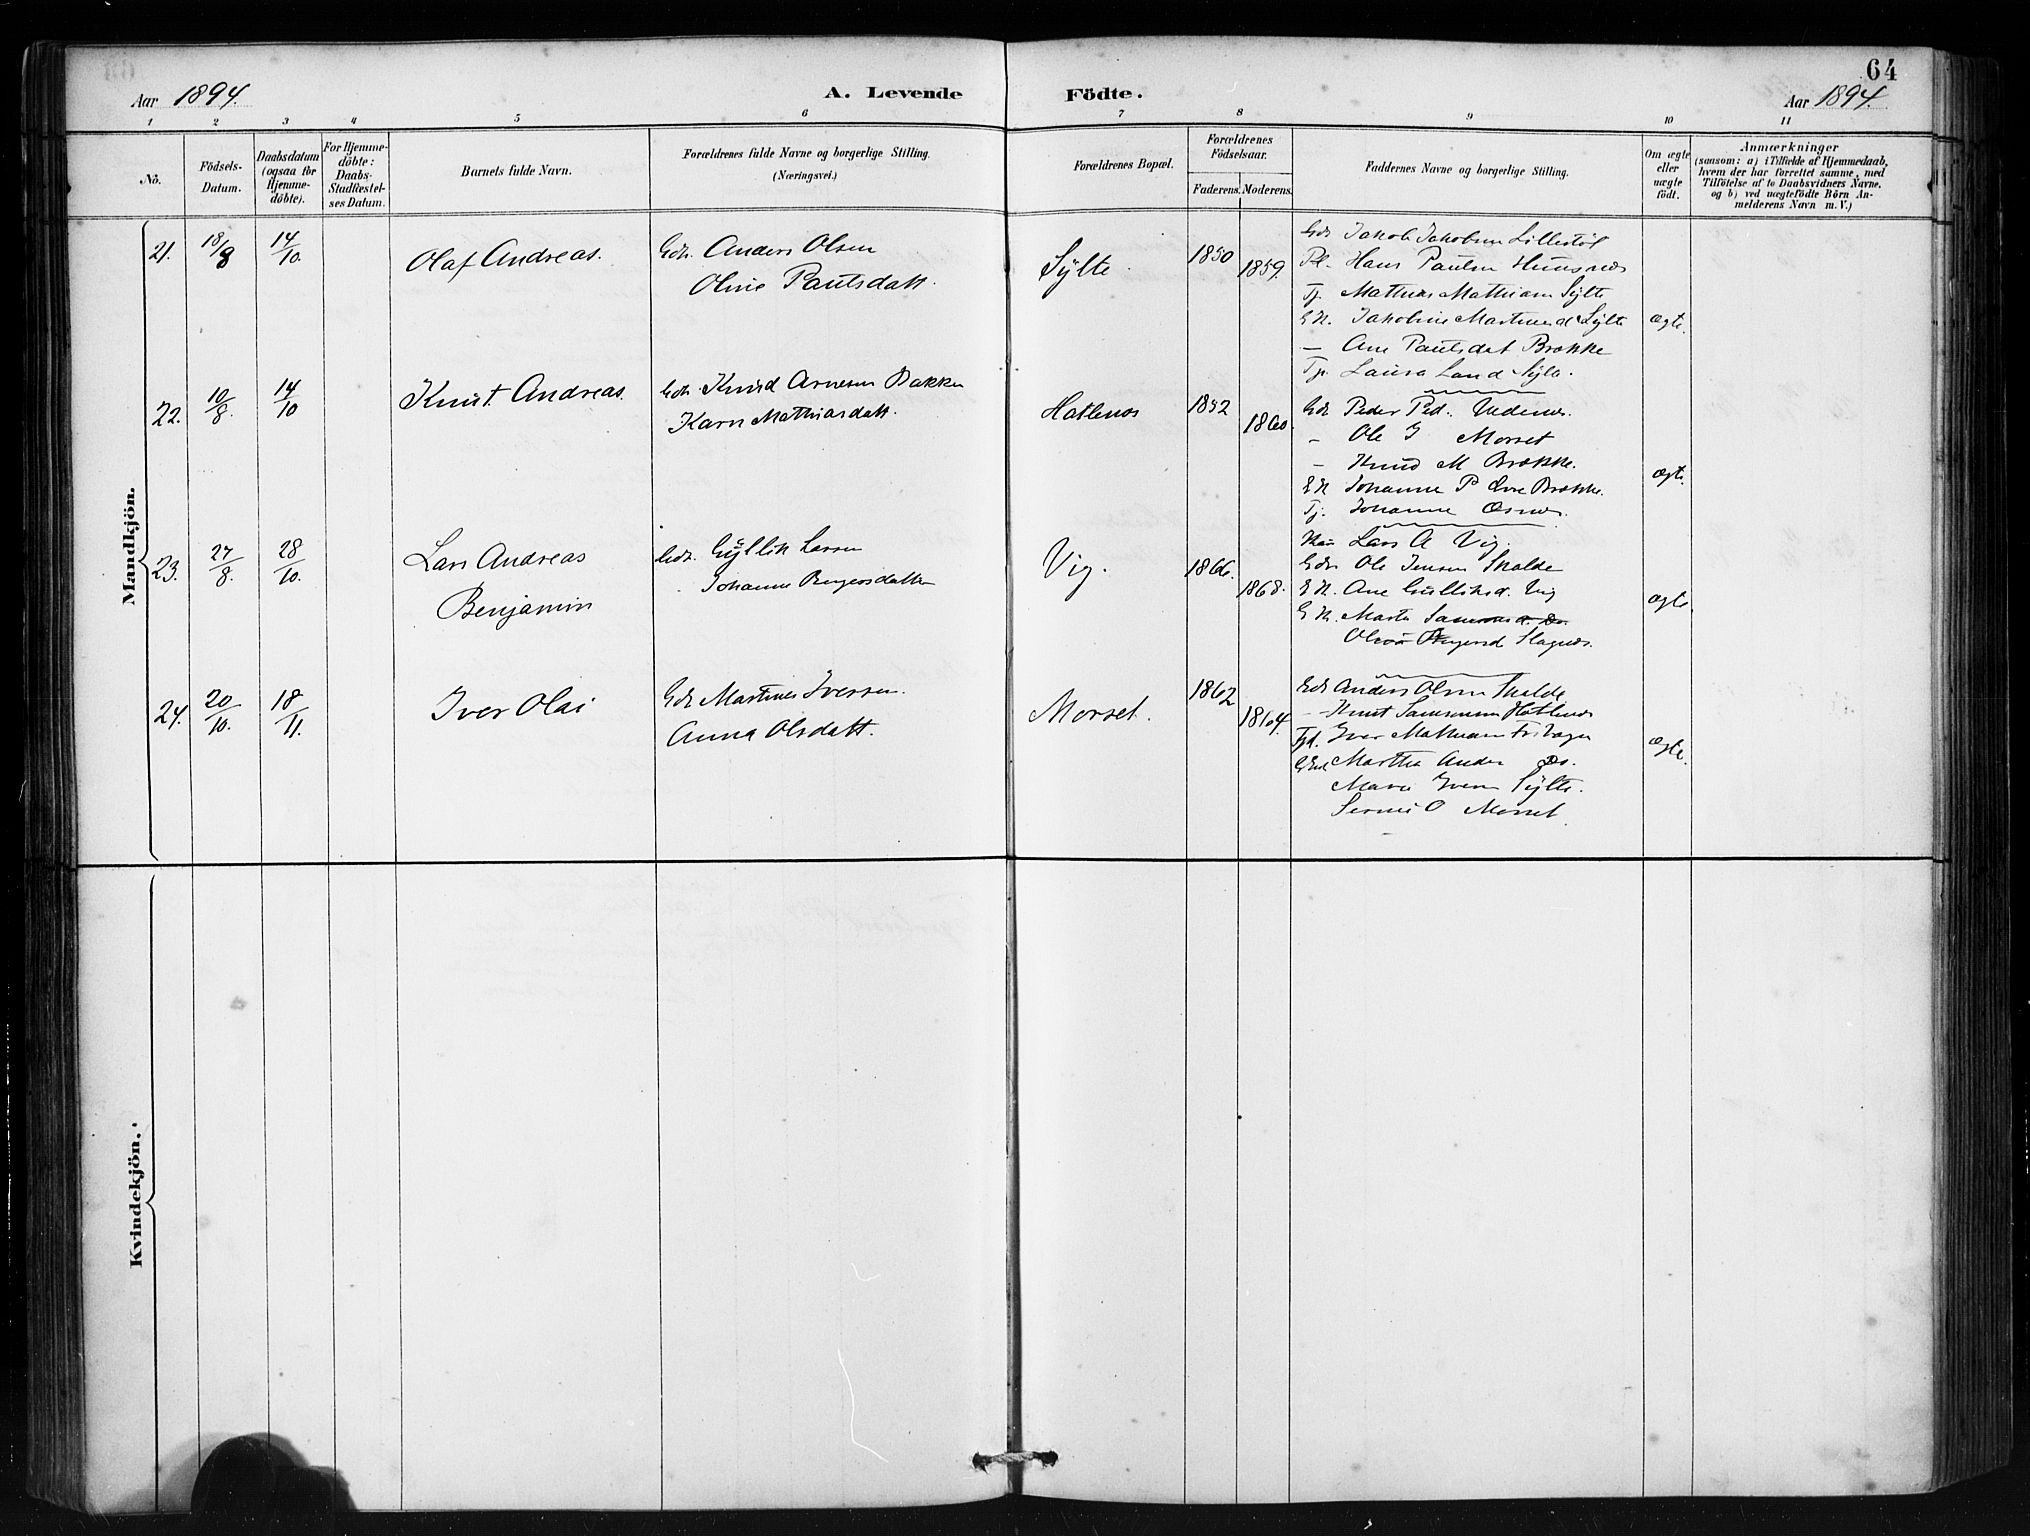 64
Aar 1894.
A. Levende Födte.
Aar 1894.
1 2 3 4 5 6 7 8 9 10 11
No.
Födsels-Datum.
Daabsdatum (ogsaa for Hjemme-döbte).
For Hjemme-döbte: Daabs-Stadfæstel-ses Datum.
Barnets fulde Navn.
Forældrenes fulde Navne og borgerlige Stilling.
(Næringsvei.)
Forældrenes Bopæl.
Forældrenes Födselsaar.
Faderens. Moderens.
Faddernes Navne og borgerlige Stilling.
Om ægte eller uægte födt.
Anmærkninger
(saasom: a) i Tilfælde af Hjemmedaab,
hvem der har forrettet samme, med
Tilföielse af to Daabsvidners Navne,
og b) ved uægtefödte Börn An-
melderens Navn m. V.)
Mandkjön.
21. 18/8 14/10. Olaf Andreas. Gdr. Anders Olsen
Oline Paulsdatt.
Sylte. 1850 1859.
Gdr Jakob Jakobsen Lillestöl
Pl. Hans Paulsen
Tj. Mathias Mathiasen Sylte
G.K. Jakobine Sylte
— Ane Paulsdat Brække
Tj. Laura Sylte.
ægte.
22. 10/8. 14/10 Knut Andreas. Gdr. Knud Arnesen Bakken
Karn Mathiasdatt.
Hatlenes 1852 1860.
Gdr Peder Ped.
- Ole I Morset
- Knud M Brække.
G K Johanne P Brække.
Tj. Johanne
ægte.
23. 27/8. 28/10. Lars Andreas
Benjamin
Gdr. Gyllik Larsen
Johanne
Vig. 1866. 1868.
Lars A Vig.
Gdr Ole Jensen Skalde
G K. Ane Gulliksd. Vig
G K. Marte
ægte
24. 20/10. 18/11. Iver Olai Gdr Martines Iversen.
Anna Olsdatt.
Morset. 1862 1864.
Gdr Anders Olsen Skalde
- Knut Samsonsen Hatlenes
Iver Mathiasen
Martha Ander Do.
Marie Ivers Sylte.
O Morset
ægte.
Kvindekjön.